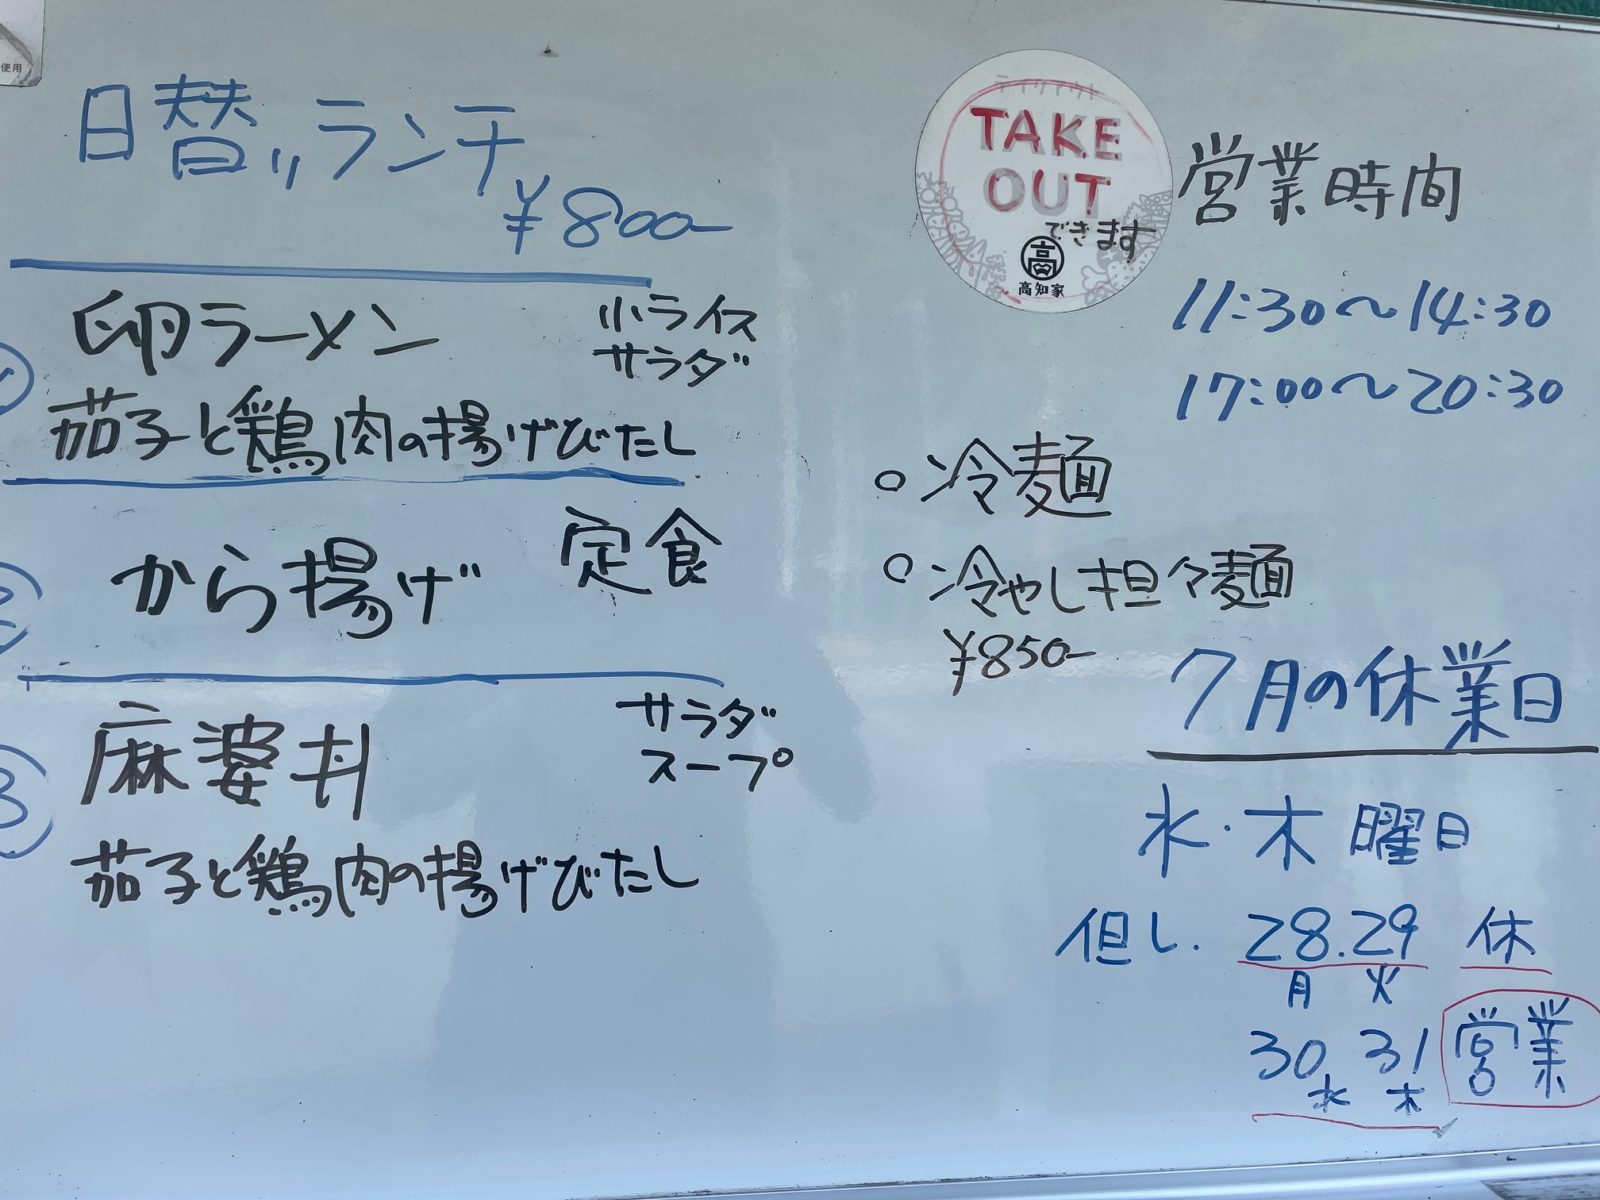 使用
日替りランチ
¥800-
卵ラーメン
小ライス
サラダ
茄子と鶏肉の揚げびたし
② から揚げ 定食
③ 麻婆丼
サラダ
スープ
茄子と鶏肉の揚げびたし
TAKE
OUT
できます
高
高知家
営業時間
11:30〜14:30
17:00〜20:30
○冷麺
○冷やし担々麺
¥850-
7月の休業日
水・木曜日
但し. 28.29 休
月 火
30 31 営業
水 木